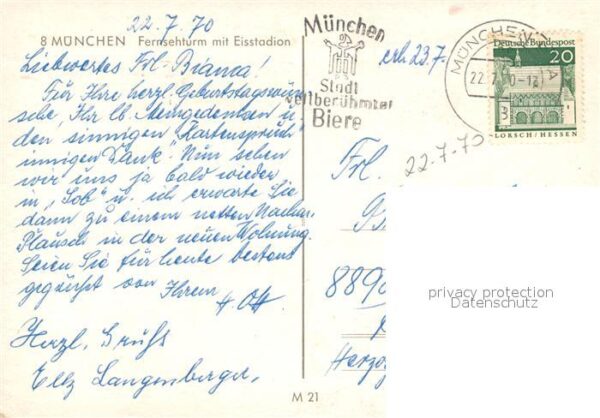 22.7.70
8 MÜNCHEN Fernsehturm mit Eisstadion
Liebwertes Frl. Bianca!
Für Ihre herzl. Geburtstagswün-
sche, Ihr lb. Meingedenken u.
den sinnigen "Kartenspruch"
innigen Dank. Nun sehen
wir uns ja bald wieder
in "Sob" u. ich erwarte Sie
dann zu einem netten Nachm.
Plausch in der neuen Wohnung.
Seien Sie für heute bestens
gegrüßt von Ihrem
H. Ott
Herzl. Grüße
Elly Langenberger,
München
Stadt
weltberühmter
Biere
erh 23.7.
MÜNCHEN
22. 0-12
Deutsche Bundespost
20
LORSCH/HESSEN
22.7.70
Frl.
8890
Herzog
privacy protection
Datenschutz
M 21